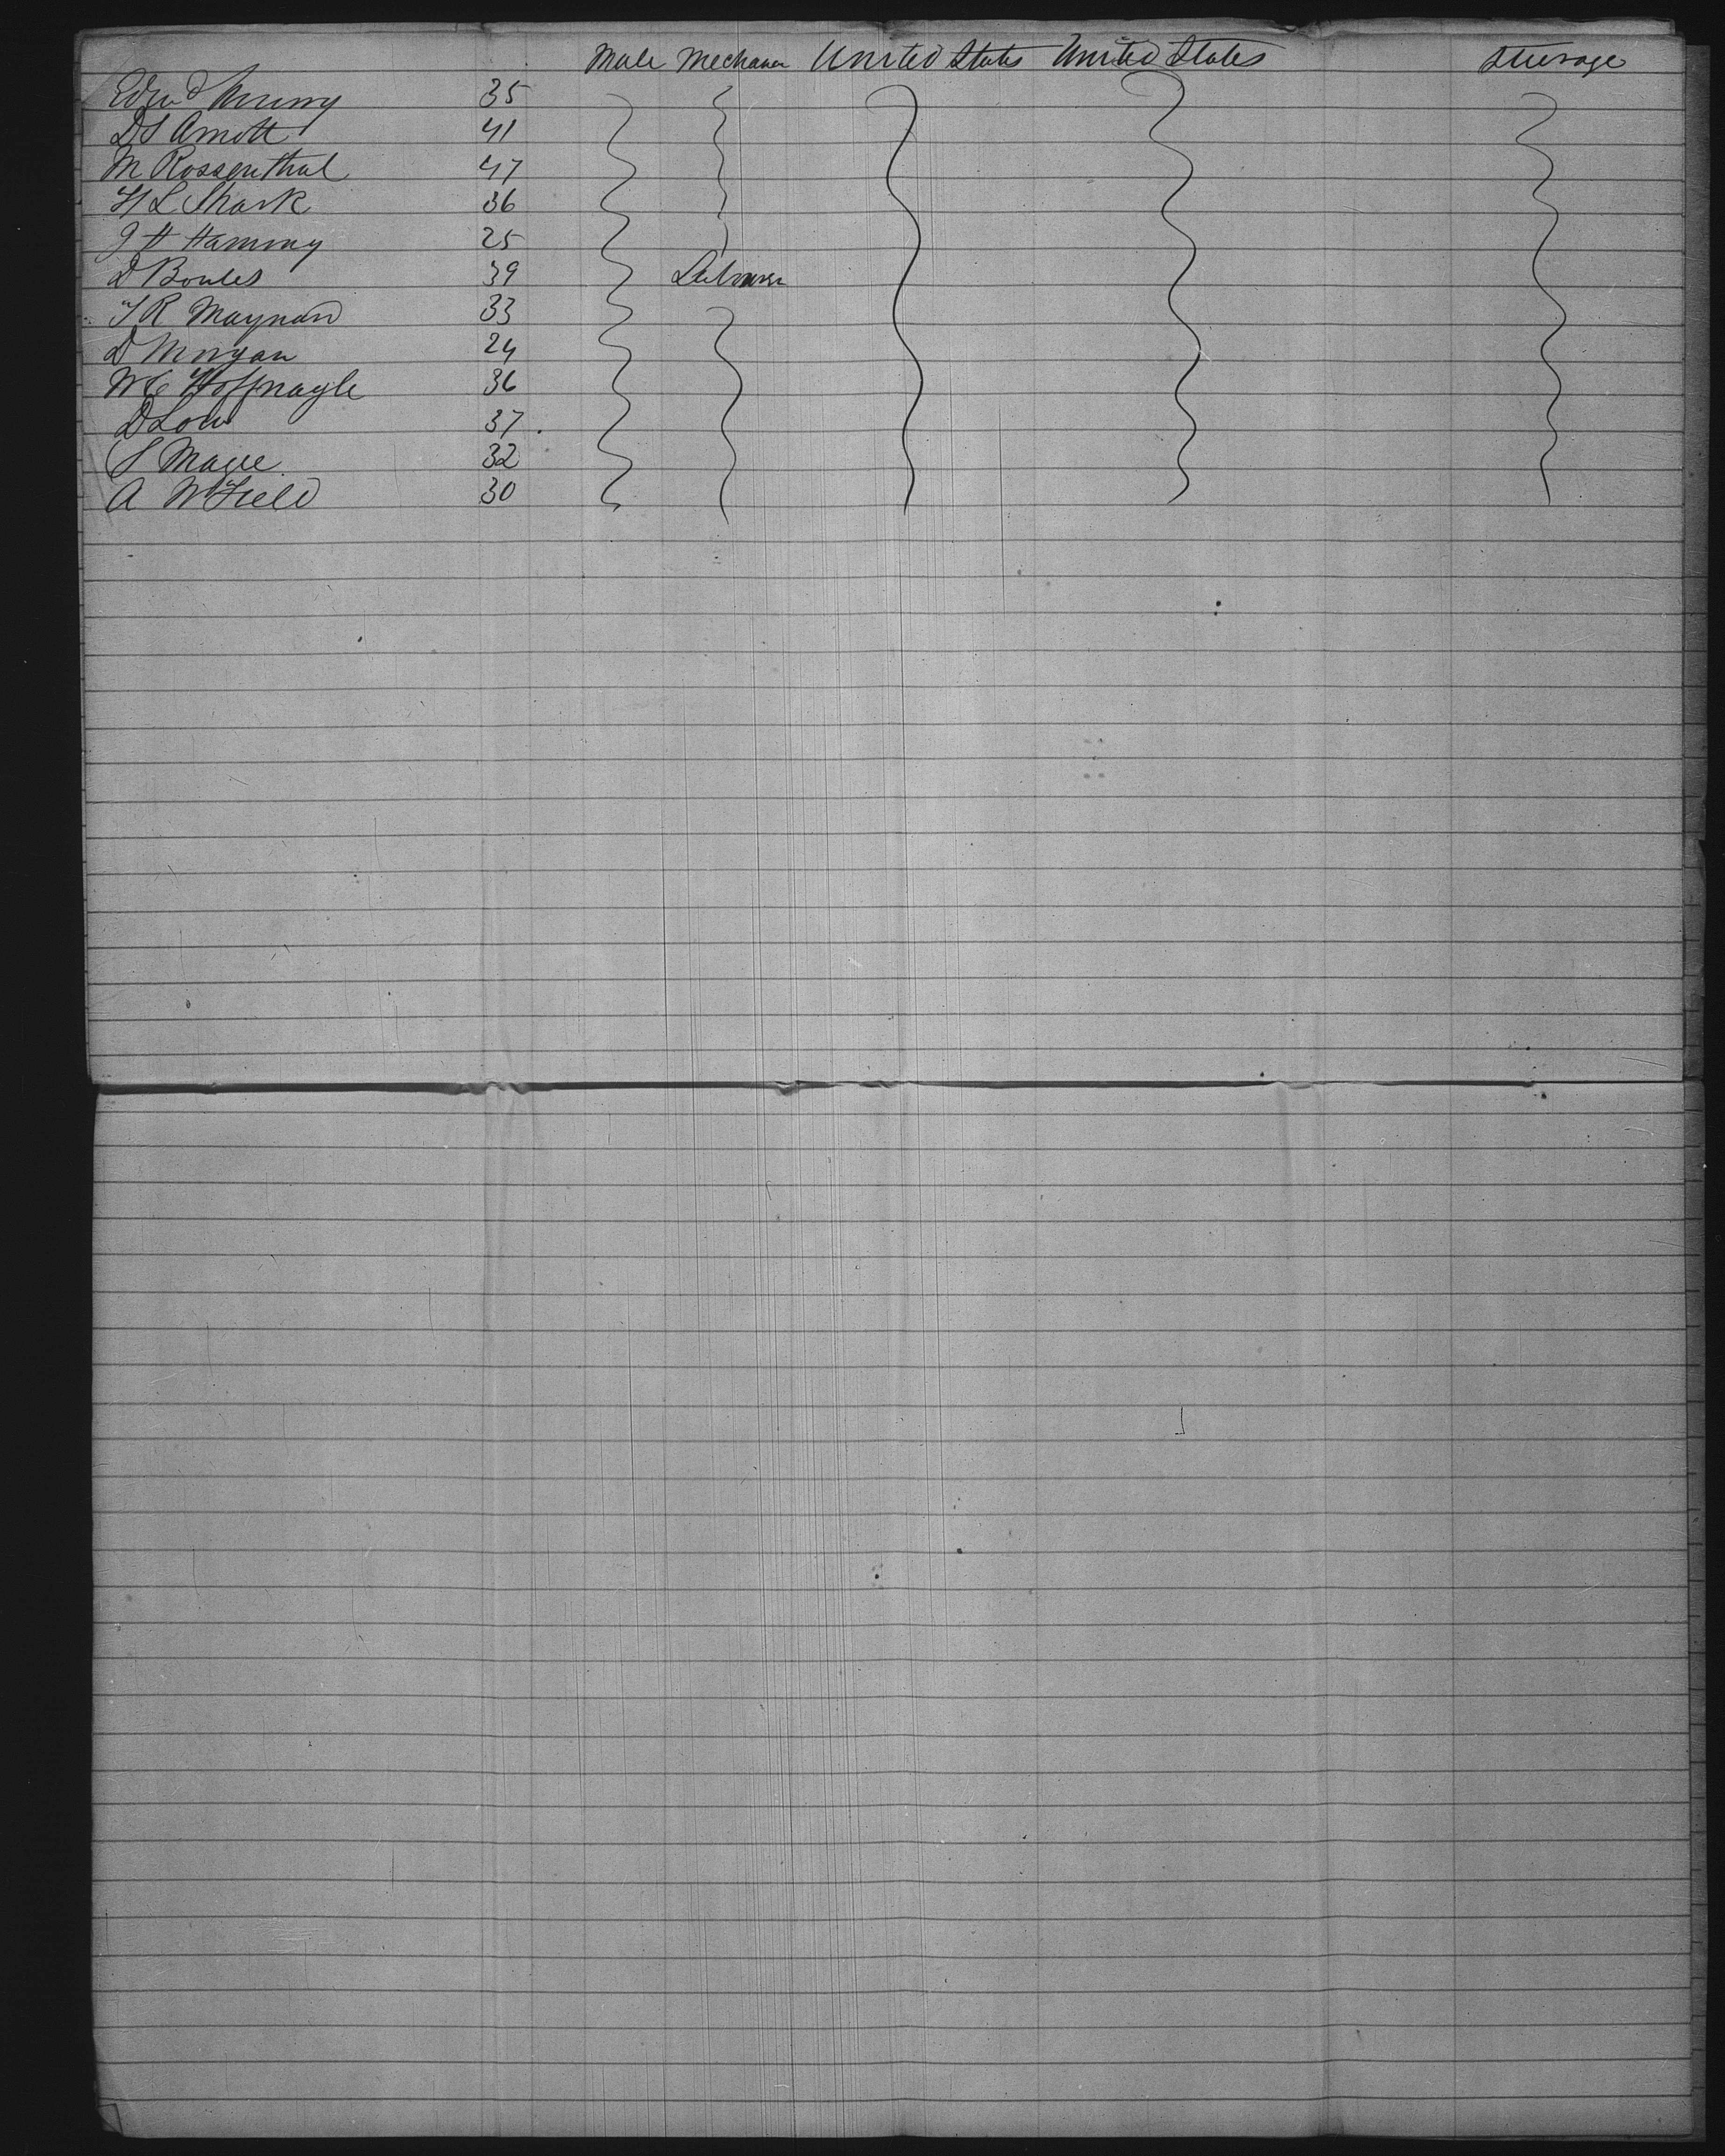 Male Mechanic United States United States Steerage
Edwd Murry 35
D S Arnott 41
M Rossenthal 47
H L Shark 36
J H Hammy 25
D Boules 39 Labourer
T R Maynard 33
D Morgan 24
W C Hoffnagle 36
D Low 37
S Magee 32
A W Field 30